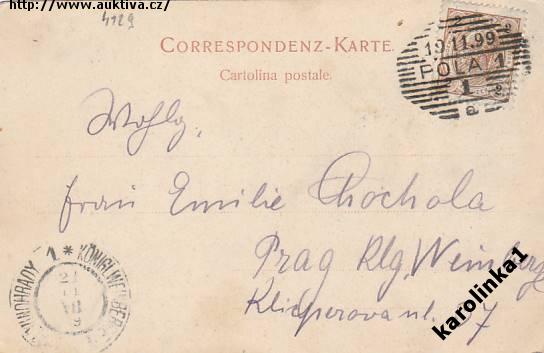 https://www.auktiva.cz/
4129
CORRESPONDENZ-KARTE.
Cartolina postale.
19.11.99
POLA 1
1
a
Wohlg.
Frau Emilie Chochola
Prag Klg. Weinberge
Klicperova ul. 27
1 * KÖNIGL. WEINBERGE
karolinka1